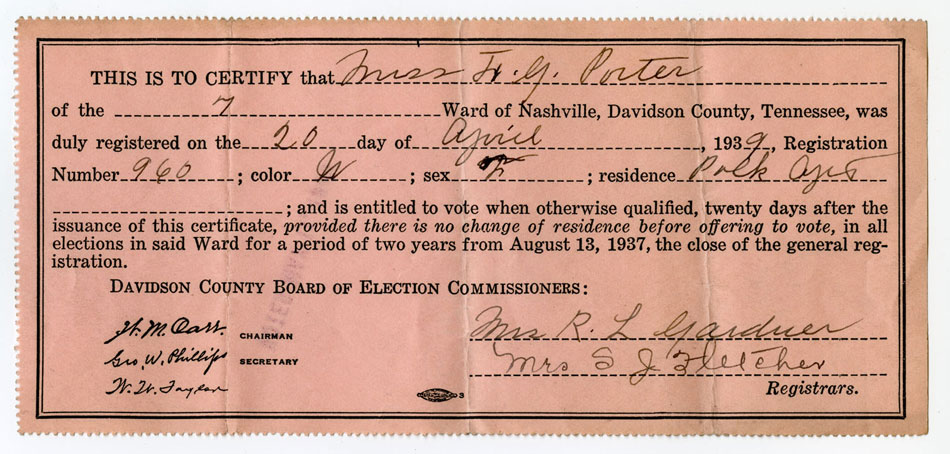 THIS IS TO CERTIFY that Miss F. G. Porter
of the 7 Ward of Nashville, Davidson County, Tennessee, was
duly registered on the 20 day of April, 1939, Registration
Number 960; color W; sex F; residence Polk Apts
; and is entitled to vote when otherwise qualified, twenty days after the
issuance of this certificate, provided there is no change of residence before offering to vote, in all
elections in said Ward for a period of two years from August 13, 1937, the close of the general reg-
istration.
DAVIDSON COUNTY BOARD OF ELECTION COMMISSIONERS:
W. M. Carr. CHAIRMAN Mrs R. L Gardner
Geo. W. Phillips SECRETARY Mrs S J Fletcher
W. W. Taylor Registrars.
3